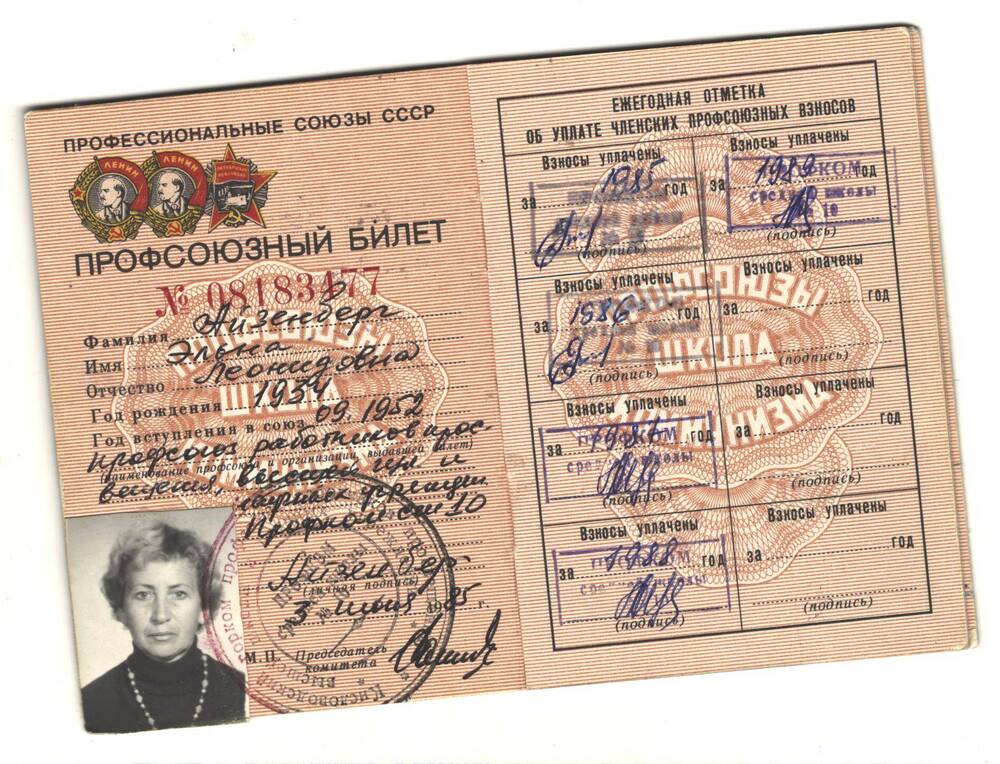 ПРОФЕССИОНАЛЬНЫЕ СОЮЗЫ СССР
ЛЕНИН ЛЕНИН
ПРОФСОЮЗНЫЙ БИЛЕТ
№ 08183477
Фамилия Айзенберг
Имя Элена
Отчество Леонидовна
Год рождения 1934
Год вступления в союз 09.1952
профсоюз работников прос-
(наименование профсоюза и организации, выдавшей билет)
вещения, высшей шк. и
научных учрежден.
Профком сш 10
Айзенберг
(личная подпись)
3 июня 1985 г.
М.П. Председатель
комитета
ЕЖЕГОДНАЯ ОТМЕТКА
ОБ УПЛАТЕ ЧЛЕНСКИХ ПРОФСОЮЗНЫХ ВЗНОСОВ
Взносы уплачены
за 1985 год
(подпись)
Взносы уплачены
за 1986 год
(подпись)
Взносы уплачены
за 1986 год
ПРОФКОМ
средней школы
(подпись)
Взносы уплачены
за 1988 год
ПРОФКОМ
средней школы
(подпись)
Взносы уплачены
за 1989 год
ПРОФКОМ
средней школы
10
(подпись)
Взносы уплачены
за год
(подпись)
Взносы уплачены
за год
(подпись)
Взносы уплачены
за год
(подпись)
ПРОФСОЮЗЫ
ШКОЛА
КОММУНИЗМА